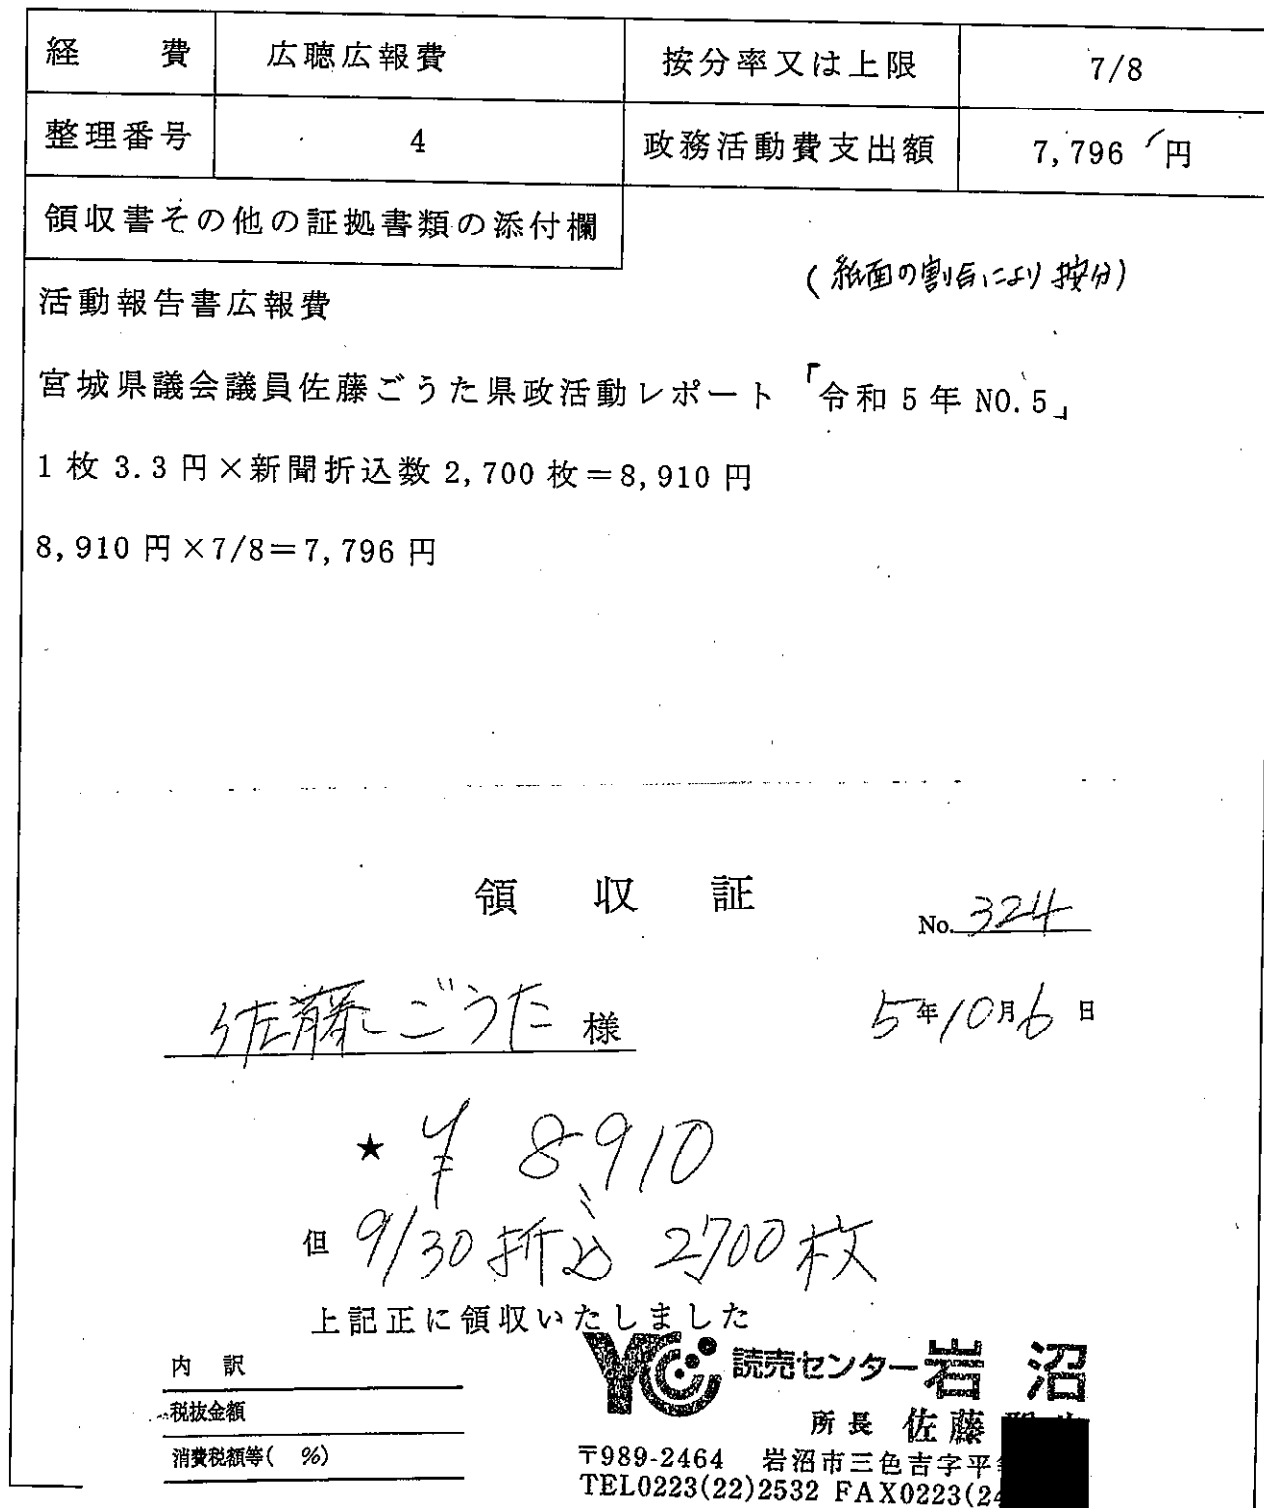 経 費 広聴広報費 按分率又は上限 7/8
整理番号 4 政務活動費支出額 7,796 円
領収書その他の証拠書類の添付欄
(紙面の割合により按分)
活動報告書広報費
宮城県議会議員佐藤ごうた県政活動レポート「令和5年NO.5」
1枚 3.3円×新聞折込数 2,700枚＝8,910円
8,910円×7/8＝7,796円
領 収 証
No. 324
佐藤ごうた 様
5年10月6日
★ ¥ 8,910
但 9/30 折込 2700枚
上記正に領収いたしました
内 訳
税抜金額
消費税額等( %)
YC 読売センター岩沼
所長 佐藤
〒989-2464 岩沼市三色吉字平
TEL0223(22)2532 FAX0223(24